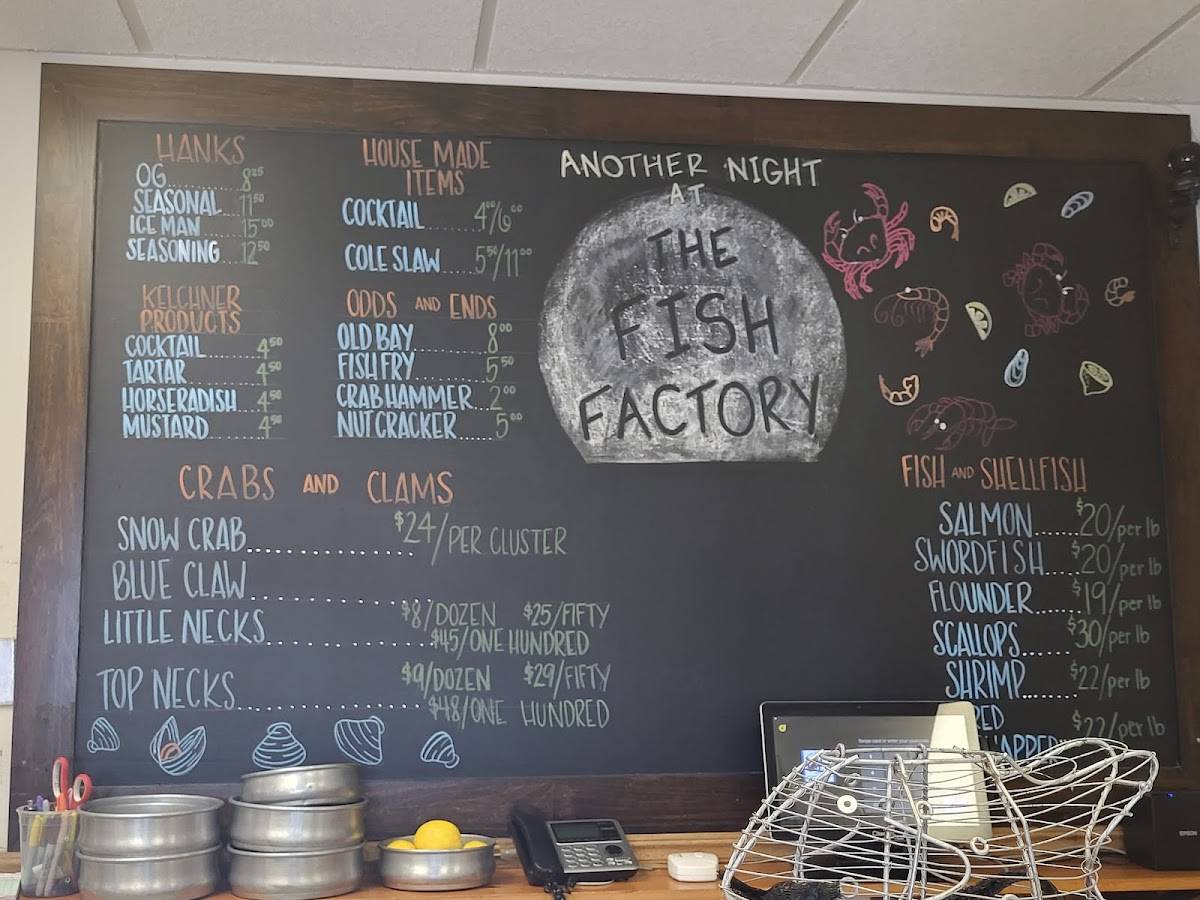 HANKS
OG........8²⁵
SEASONAL....11⁵⁰
ICE MAN......15⁰⁰
SEASONING....12⁵⁰
KELCHNER
PRODUCTS
COCKTAIL........4⁵⁰
TARTAR..........4⁵⁰
HORSERADISH....4⁵⁰
MUSTARD........4⁵⁰
HOUSE MADE
ITEMS
COCKTAIL........4⁰⁰/6⁰⁰
COLE SLAW.....5⁵⁰/11⁰⁰
ODDS AND ENDS
OLD BAY..........8⁰⁰
FISH FRY.........5⁵⁰
CRAB HAMMER...2⁰⁰
NUTCRACKER.....5⁰⁰
ANOTHER NIGHT
AT
THE
FISH
FACTORY
CRABS AND CLAMS
SNOW CRAB................$24/PER CLUSTER
BLUE CLAW................
LITTLE NECKS................$8/DOZEN $25/FIFTY
$45/ONE HUNDRED
TOP NECKS................$9/DOZEN $29/FIFTY
$48/ONE HUNDRED
FISH AND SHELLFISH
SALMON......$20/per lb
SWORDFISH.....$20/per lb
FLOUNDER.......$19/per lb
SCALLOPS......$30/per lb
SHRIMP.......$22/per lb
$22/per lb
EPSON